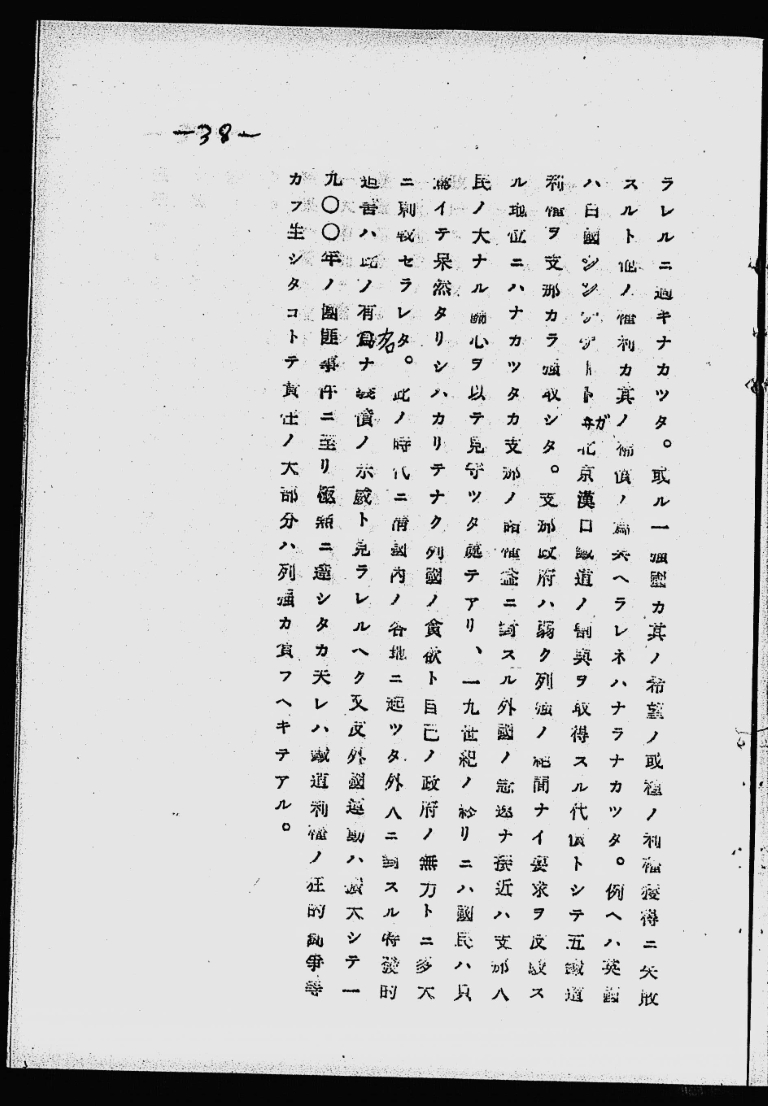 —38—
ラレルニ過キナカツタ。或ル一強國カ其ノ希望ノ或種ノ利權獲得ニ失敗
スルト他ノ權利カ其ノ補償ノ爲英ヘラレネハナラナカツタ。例ヘハ英國
ハ白國シンヂケートガ北京漢口鐵道ノ割與ヲ取得スル代償トシテ五鐵道
利權ヲ支那カラ強取シタ。支那政府ハ弱ク列強ノ絕間ナイ要求ヲ反駁ス
ル地位ニハナカツタカ支那ノ諸權益ニ對スル外國ノ急速ナ接近ハ支那人
民ノ大ナル關心ヲ以テ見守ツタ處テアリ、一九世紀ノ終リニハ國民ハ只
驚イテ呆然タリシハカリテナク列國ノ貪欲ト自己ノ政府ノ無力トニ多大
ニ刺戟セラレタ。此ノ時代ニ清國內ノ各地ニ起ツタ外人ニ對スル特發的
迫害ハ此ノ有名ナ義憤ノ示威ト見ラレルヘク又反外國運動ハ擴大シテ一
九〇〇年ノ團匪事件ニ至リ極點ニ達シタカ夫レハ鐵道利權ノ狂的競爭等
カラ生シタコトテ責任ノ大部分ハ列强カ負フヘキテアル。